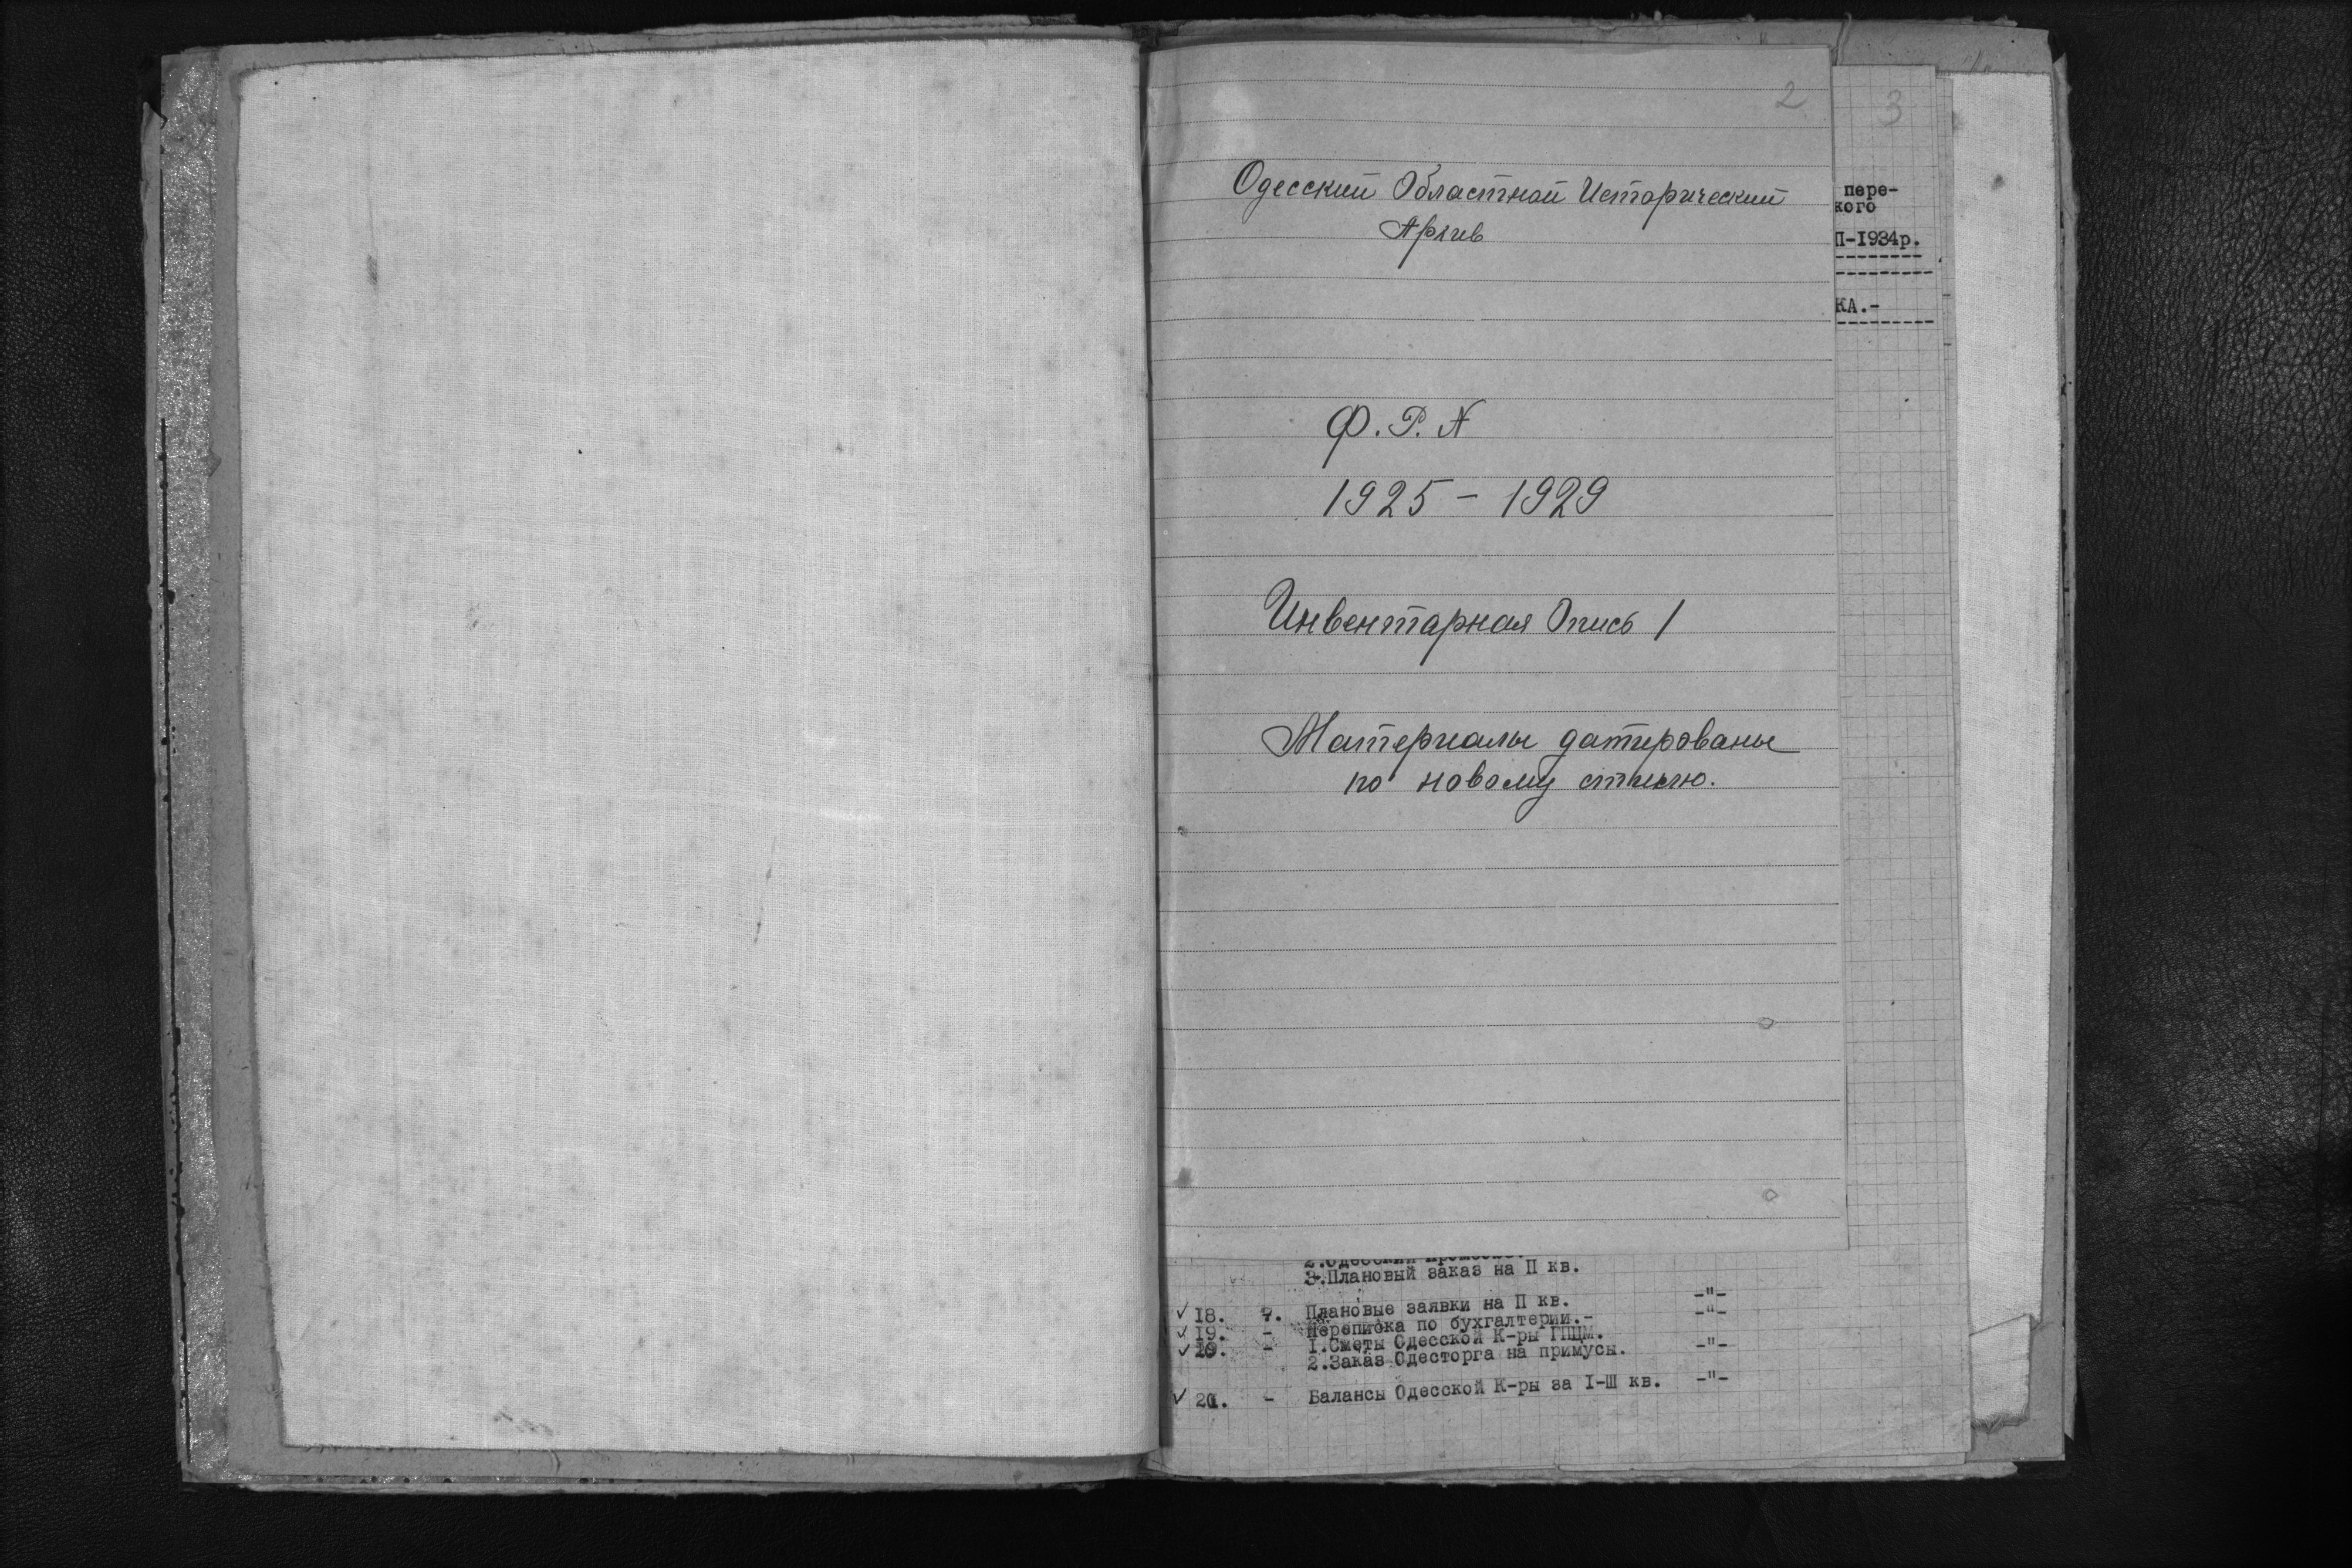 2
Одесский Областной Исторический
Архив
Ф. Р. N
1925 – 1929
Инвентарная Опись 1
Материалы датированы
по новому стилю.
3
пере-
кого
П-1934р.
КА.-
3.Плановый заказ на П кв.
18. Плановые заявки на П кв. -"-
19. - Переписка по бухгалтерии.- -"-
- 1.Сметы Одесской К-ры ГПЦМ.
2.Заказ Одесторга на примусы. -"-
- Балансы Одесской К-ры за I-Ш кв. -"-